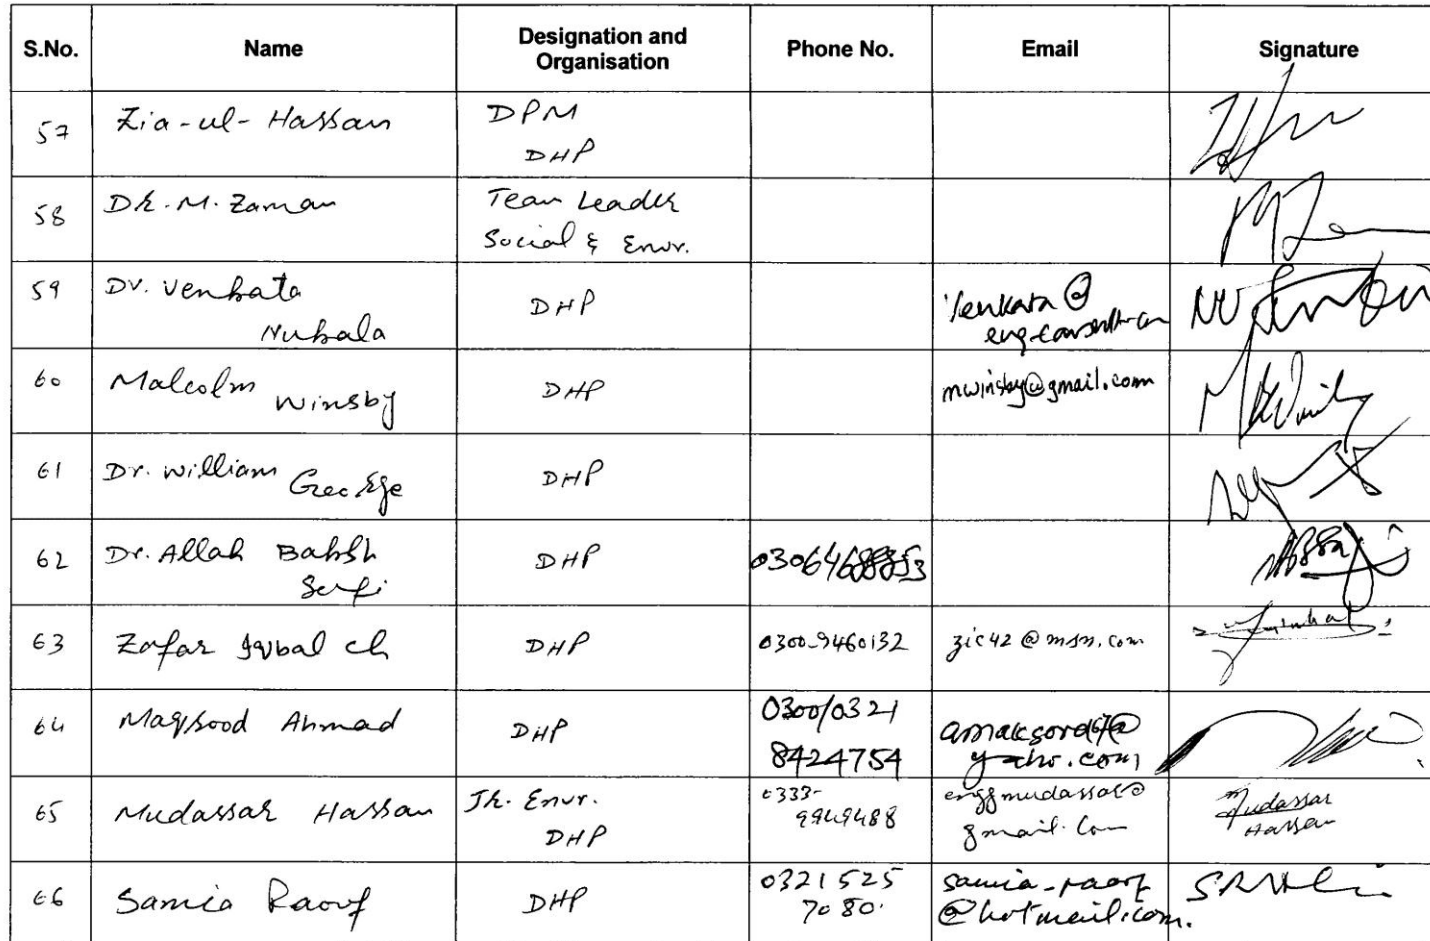 S.No. Name Designation and Organisation Phone No. Email Signature
57 Zia-ul-Hassan DPM
DHP
58 Dr. M. Zaman Team Leader
Social & Envr.
59 Dr. Venkata DHP Venkata @
Nukala
60 Malcolm Winsby DHP mwinsby@gmail.com
61 Dr. William George DHP
62 Dr. Allah Bakhsh DHP
Sufi
63 Zafar Iqbal ch DHP 0300-9460132 zic42@msn.com
64 Maqsood Ahmad DHP 0300/0321
8424754 yaho.com
65 Mudassar Hassan Jr. Envr. 0333- enggmudassar@ Mudassar
DHP 9949488 gmail.com Hassan
66 Samia Raouf DHP 0321 525 samia-raouf
7080. @hotmail.com.